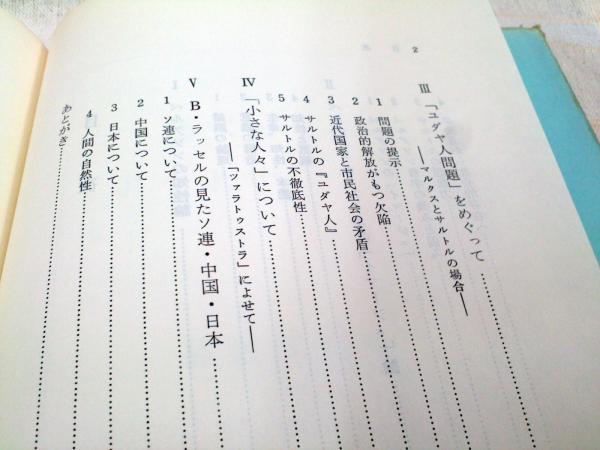 2
III 「ユダヤ人問題」をめぐって
――マルクスとサルトルの場合――
1 問題の提示
2 政治的解放がもつ欠陥
3 近代国家と市民社会の矛盾
4 サルトルの『ユダヤ人』
5 サルトルの不徹底性
IV 「小さな人々」について
――「ツァラトゥストラ」によせて――
V B・ラッセルの見たソ連・中国・日本
1 ソ連について
2 中国について
3 日本について
4 人間の自然性
あとがき